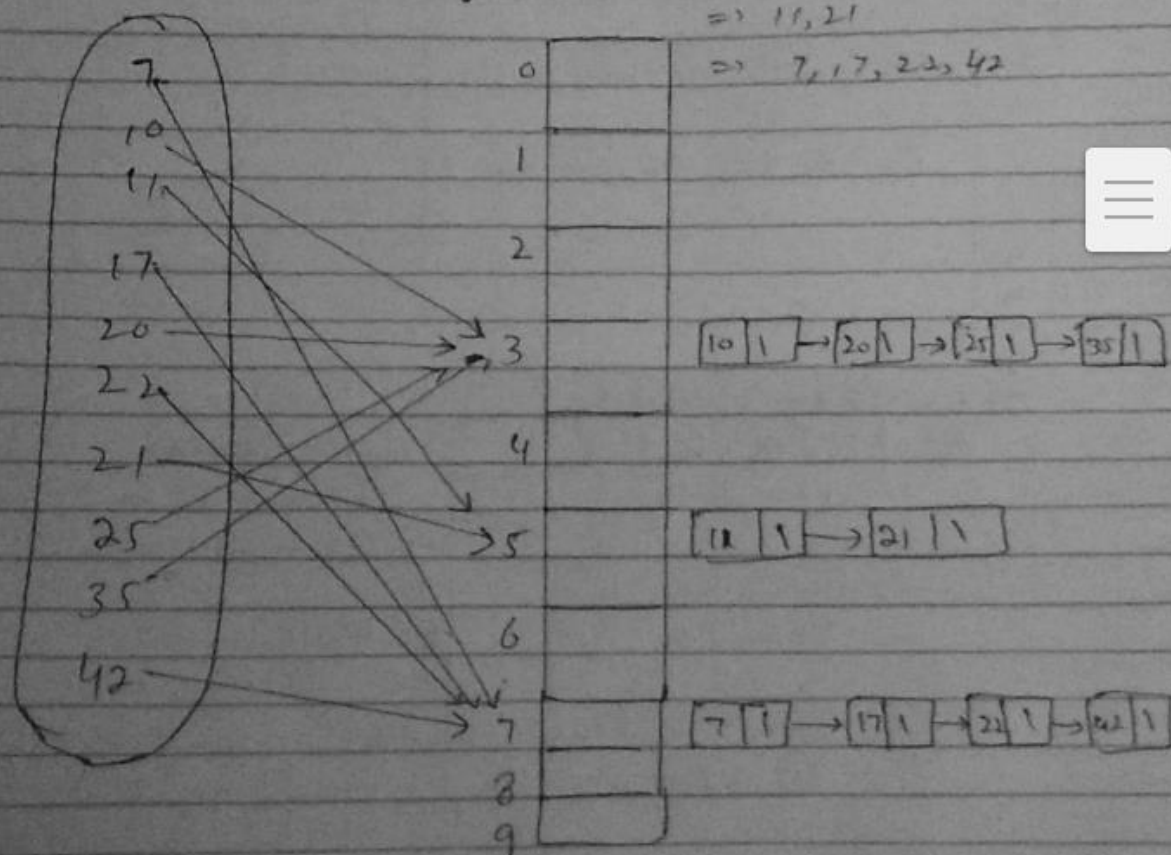 => 11, 21
=> 7, 17, 22, 42
7
10
11
17
20
22
21
25
35
42
0
1
2
3
4
5
6
7
8
9
10 \ 20 \ 25 \ 35 \
11 \ 21 \
7 \ 17 \ 22 \ 42 \